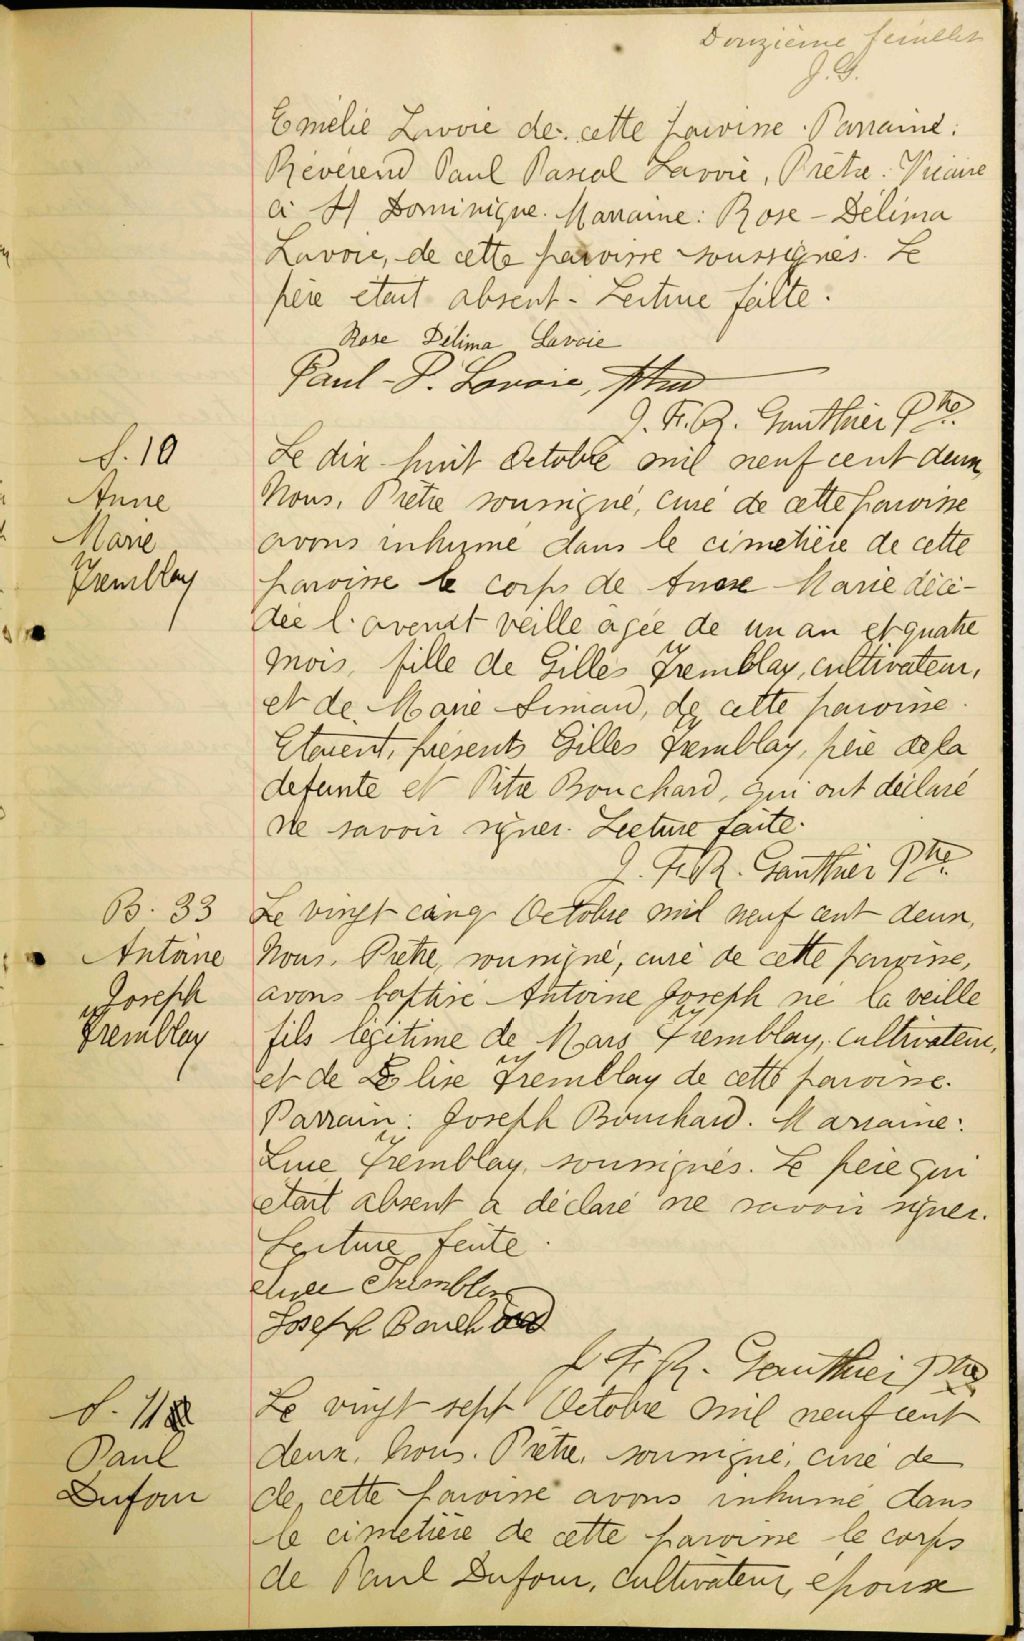 Douzième feuillet
J. G.
Emélie Lavoie de cette paroisse. Parrain:
Révérend Paul Pascal Lavoie, Prêtre. Vicaire
à St Dominique. Marraine: Rose-Délima
Lavoie, de cette paroisse soussignés. Le
père était absent - Lecture faite.
Rose Délima Lavoie
Paul-P. Lavoie, ptre
J. F. R. Gauthier Ptre
S. 10
Anne
Marie
Tremblay
Le dix huit Octobre mil neuf cent deux,
Nous, Prêtre soussigné, curé de cette paroisse
avons inhumé dans le cimetière de cette
paroisse le corps de Anne Marie décé-
dée l'avant veille âgée de un an et quatre
mois, fille de Gilles Tremblay, cultivateur,
et de Marie Simard, de cette paroisse.
Etaient présents Gilles Tremblay, père de la
defunte et Pitre Bouchard, qui ont déclaré
ne savoir signer. Lecture faite.
J. F. R. Gauthier Ptre
B. 33
Antoine
Joseph
Tremblay
Le vingt cinq Octobre mil neuf cent deux,
Nous, Prêtre, soussigné, curé de cette paroisse,
avons baptisé Antoine Joseph né la veille
fils légitime de Mars Tremblay, cultivateur,
et de Elise Tremblay de cette paroisse.
Parrain: Joseph Bouchard. Marraine:
Luce Tremblay, soussignés. Le père qui
était absent a déclaré ne savoir signer.
Lecture faite.
Luce Tremblay
Joseph Bouchard
J. F. R. Gauthier Ptre
S. 11
Paul
Dufour
Le vingt sept Octobre mil neuf cent
deux, Nous, Prêtre, soussigné, curé de
de cette paroisse avons inhumé dans
le cimetière de cette paroisse le corps
de Paul Dufour, cultivateur, époux